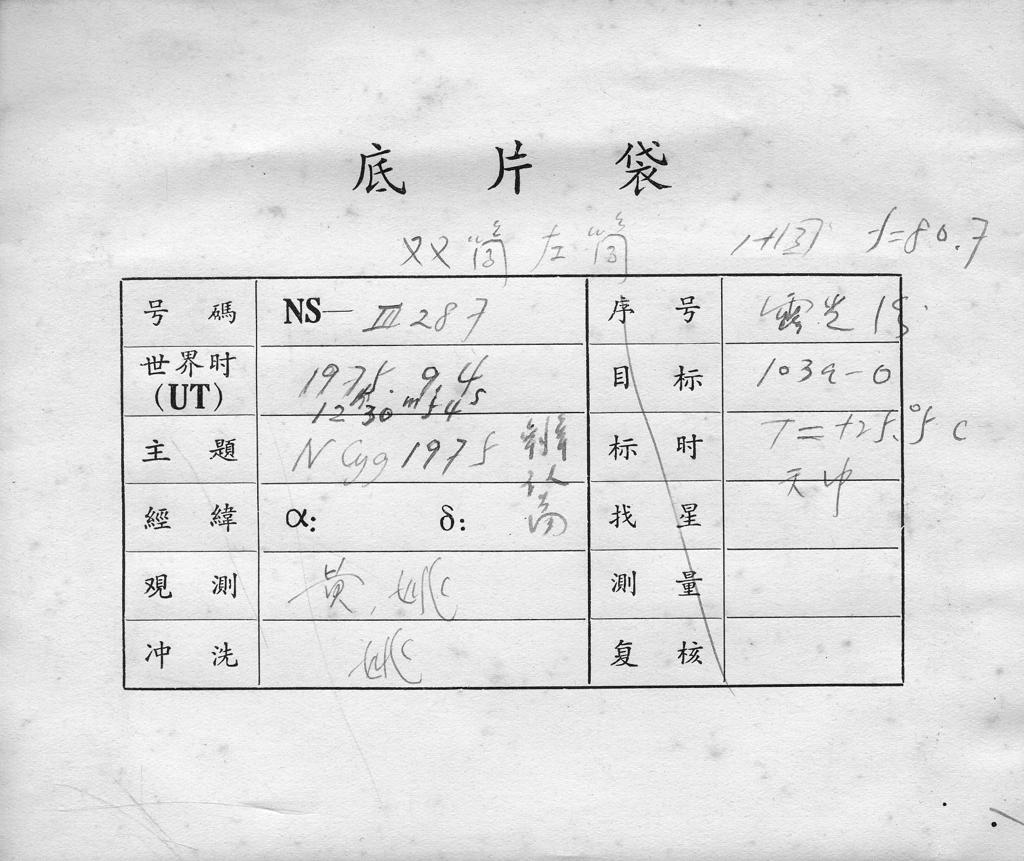 底片袋
双筒左筒 f=80.7
号碼 NS— III 287 序号 露光 1s
世界时 (UT) 1975. 9. 4 目标 103a-O
12h 30m 54s
主題 N Cyg 1975 标时 T=+25.°5 C
天中
經緯 α: δ: 找星
观測 黄、姚 測量
冲洗 姚 复核